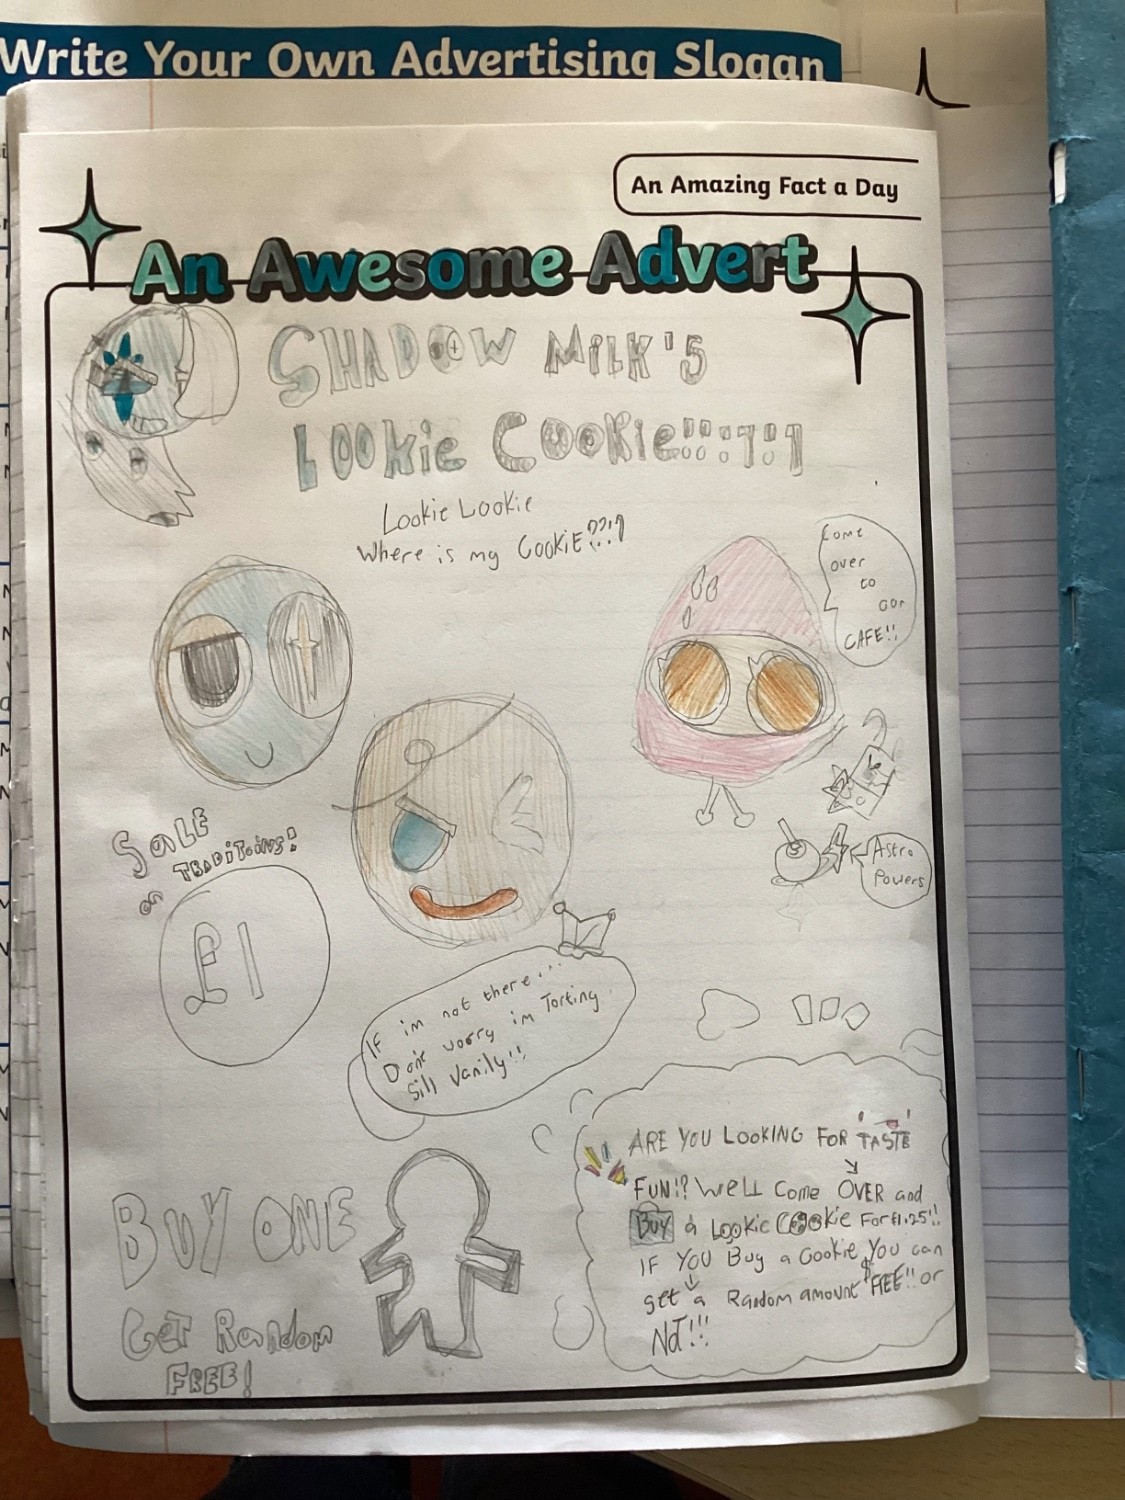 Write Your Own Advertising Slogan
An Amazing Fact a Day
An Awesome Advert
SHADOW MILK'S
LOOKIE COOKIE!!:?!?
Lookie Lookie
Where is my COOKIE??!?
Come
over
to
our
CAFE!!
SALE
on TRADIToiNS!
£1
Astro
Powers
If im not there...
Don't worry im Torting
Sill Vanily!!
ARE YOU LOOKING FOR 'TASTE'
FUN!? Well Come OVER and
BUY a LOOKIE COOKIE For £1.25!!
IF YOU Buy a Cookie You can
get a Random amount FREE!! or
NOT!!!
BUY ONE
GET Random
FREE!